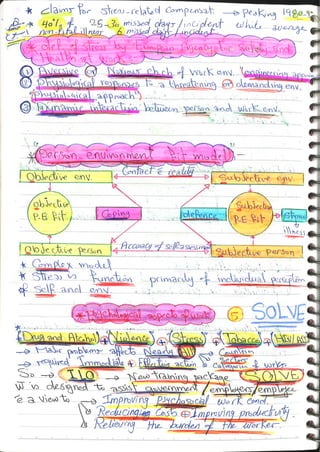 * claims for stress-related compensat. → peaking 1980.s
40% of 25-30 missed days/incident while average
non-fatal illness 6 missed days/incident
* Def. of stress by European Agency for safety and
Health at work
① Aversive or Noxious ch.ch of work env. "engineering app
② Physiological responses to a threatening or demanding env.
"Physiological approach"
③ Dynamic interaction between person and work env.
* Person environment fit model
Objective env. Contact c reality Subjective env.
objective P.E fit Coping defence Subjective P.E fit stress
illness
Objective person Accuracy of self assessment Subjective Person
* Complex model
* Stress is function primarily of individual perception
of self and env.
* Psychological aspects of work ⑤ SOLVE
Drug and Alcohol + Violence + Stress + Tobacco + HIV/AIDS
→ Major problems affects Nearly All Countries
Sectors
→ required Immediate + Effective action Categories of worker
So → ILO → New training package SOLVE
W is designed to assist government / employers / employee
c a view to → Improving Psychosocial work env.
Reducing Cost ⊕ Improving productivity.
Relieving the burden of the worker.